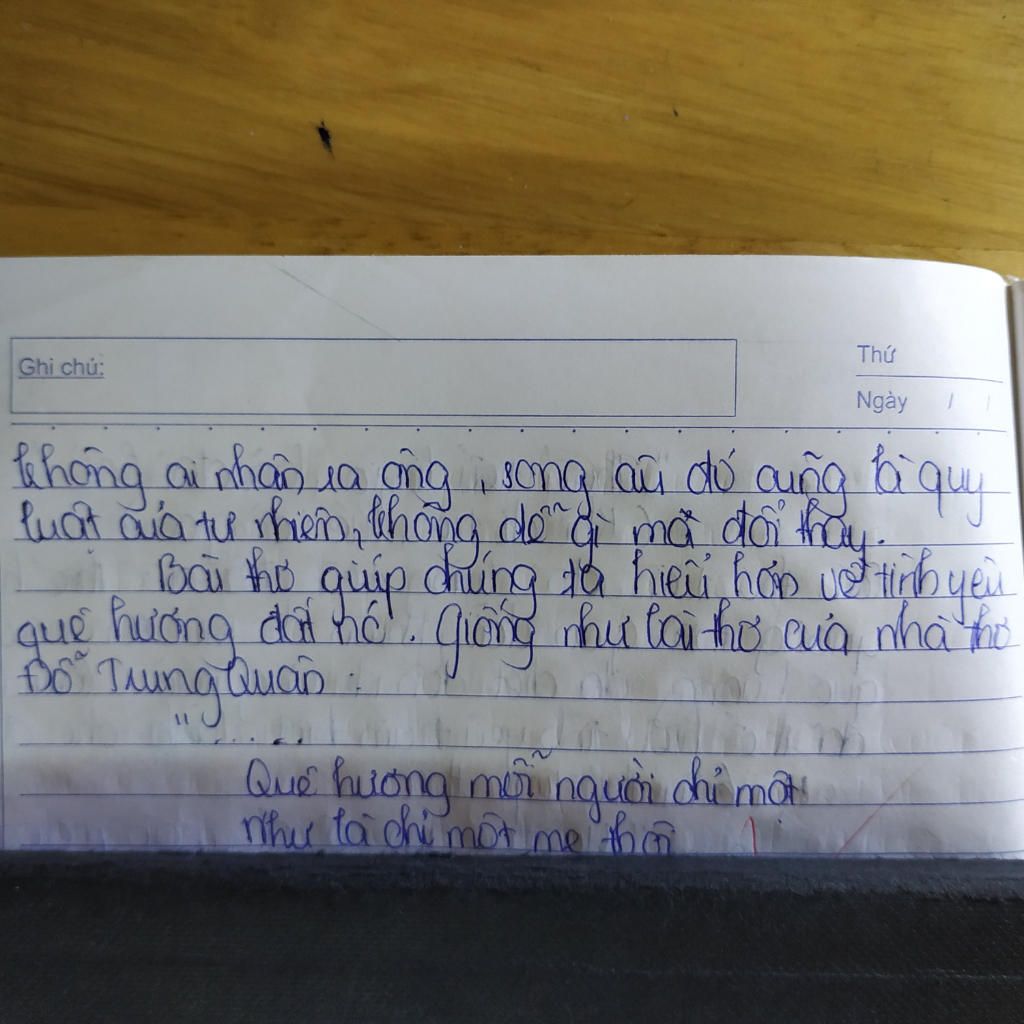 Ghi chú:
Thứ
Ngày / /
không ai nhận ra ông, song âu đó cũng là quy
luật của tự nhiên, không dễ gì mà đổi thay.
Bài thơ giúp chúng ta hiểu hơn về tình yêu
quê hương đất nc. Giống như lời thơ của nhà thơ
Đỗ Trung Quân :
" .....
Quê hương mỗi người chỉ một
Như là chỉ một mẹ thôi